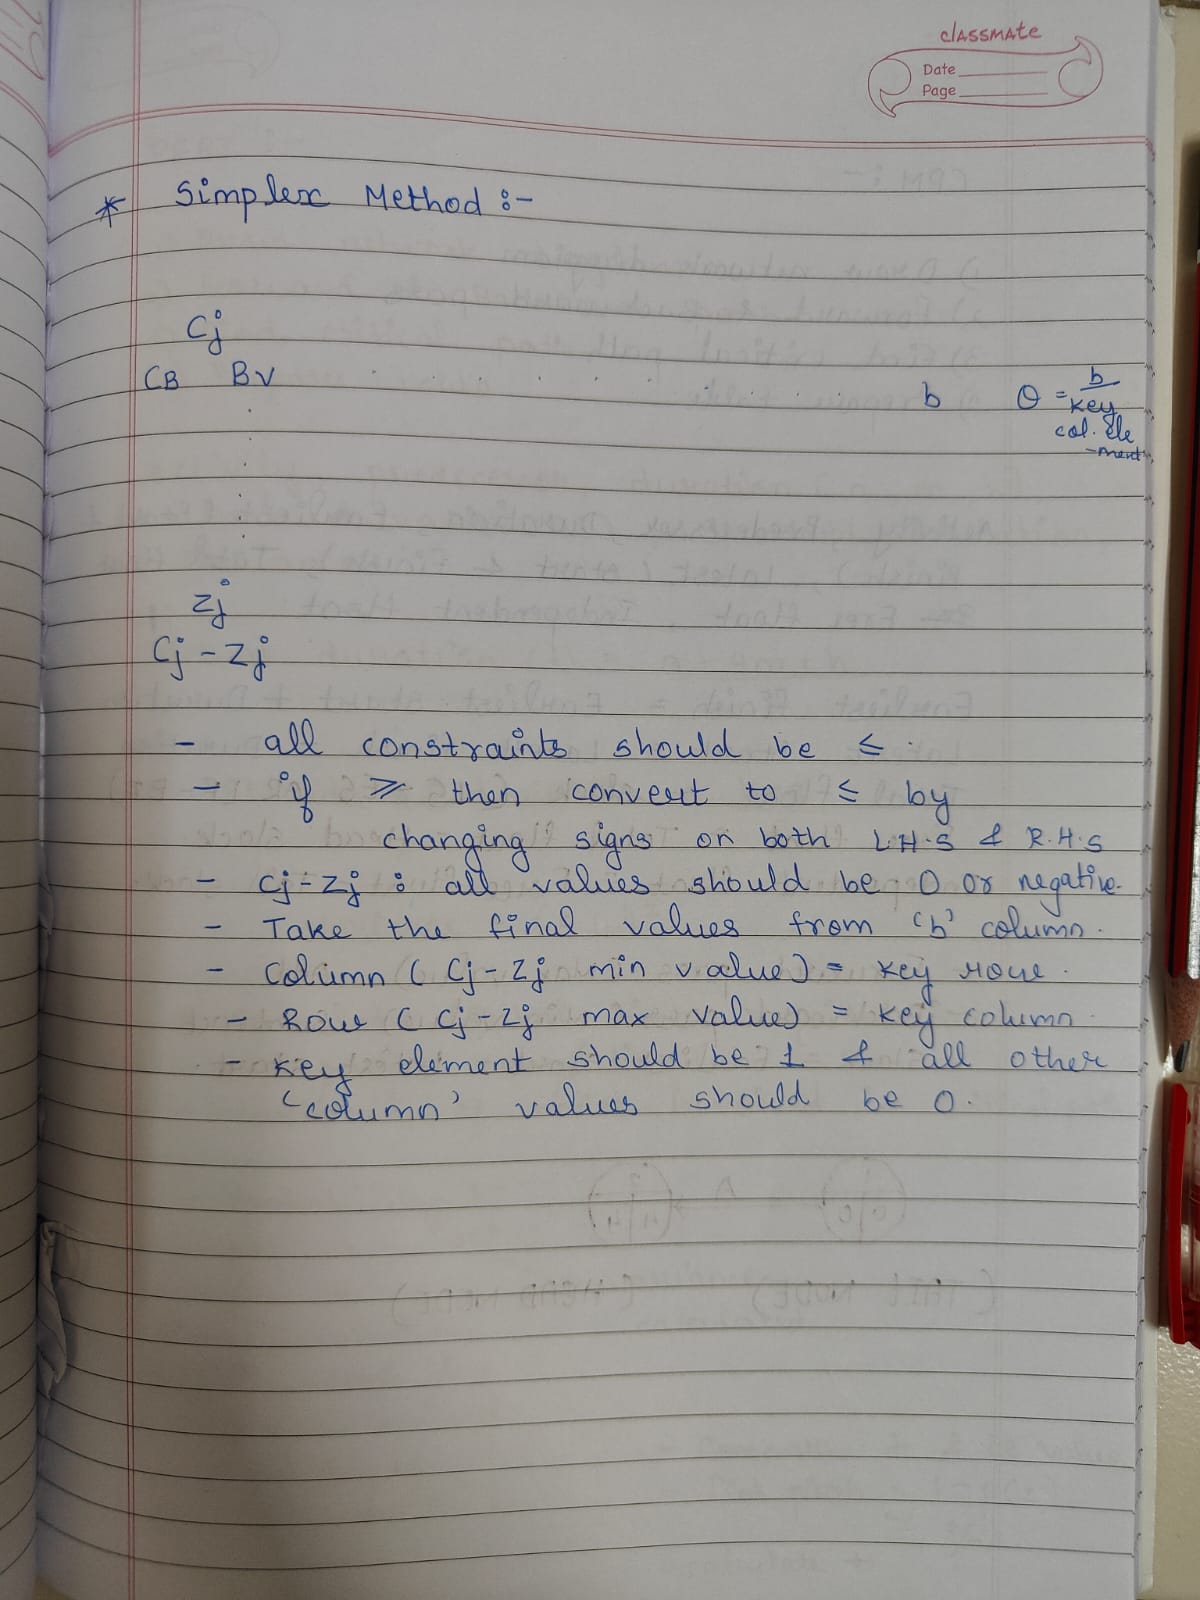 classmate
Date
Page
* Simplex Method :-
Cj
CB BV . . . . . . . b θ = b/key
col. ele
-ment
Zj
Cj - Zj
- all constraints should be ≤ .
- if ≥ then convert to ≤ by
changing signs on both L.H.S & R.H.S
- Cj - Zj : all values should be 0 or negative.
- Take the final values from 'b' column.
- Column ( Cj - Zj min value) = key row.
- Row ( Cj - Zj max value) = key column
- key element should be 1 & all other
'column' values should be 0.